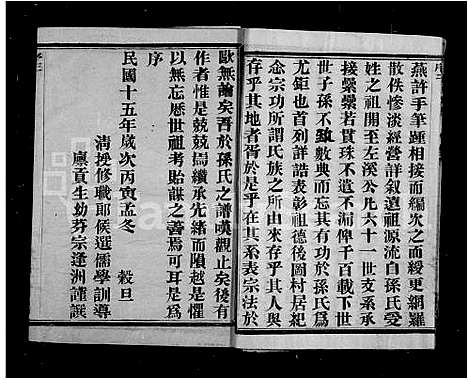 序三
燕許手筆踵相接而編次之而綬更網羅
散佚慘淡經營詳叙遺祖源流自孫氏受
姓之祖開至左溪公凡六十一世支系承
接纍纍若貫珠不遺不漏俾千百載下世
世子孫不致數典而忘有功於孫氏為
尤鉅也首列詳誥表彰祖德後圖村居紀
念宗功所謂氏族之所由來存乎其人其
存乎其地者胥於是乎在其系表宗法於
歐無論矣吾於孫氏之譜嘆觀止矣後有
作者惟是兢兢焉纘承先緒而隕越是懼
以無忘歷世祖考貽謀之善焉可耳是為
序
民國十五年歲次丙寅孟冬 穀旦
清授修職郎候選儒學訓導
廩貢生幼芬宗逢洲謹譔